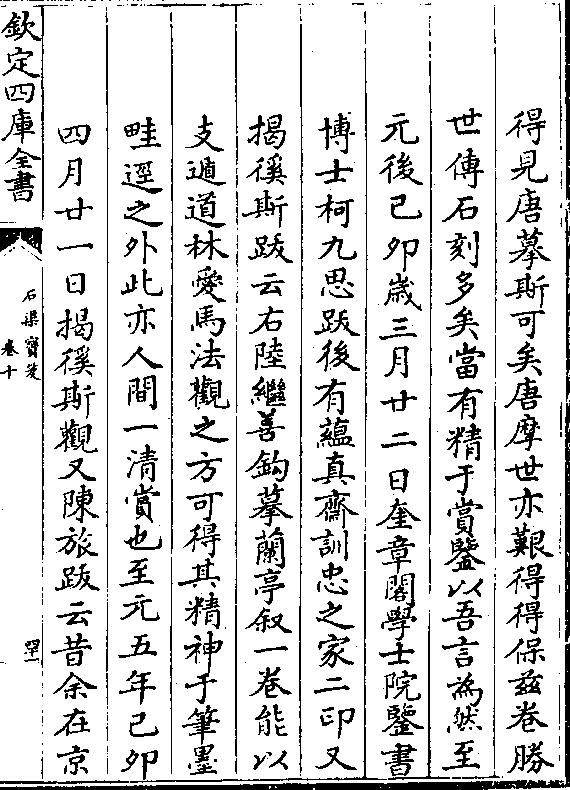 得見唐摹斯可矣唐摩世亦艱得得保兹卷勝
世傳石刻多矣當有精于賞鑒以吾言為然至
元後己夘歳三月廿二日奎章閣學士院鑒書
博士柯九思跋後有藴真齋訓忠之家二印又
揭徯斯跋云右陸繼善鈎摹蘭亭叙一卷能以
支遁道林愛馬法觀之方可得其精神于筆墨
畦逕之外此亦人間一清賞也至元五年己夘
四月廿一日揭徯斯觀又陳旅跋云昔余在京
欽定四庫全書
石渠寶笈
卷十